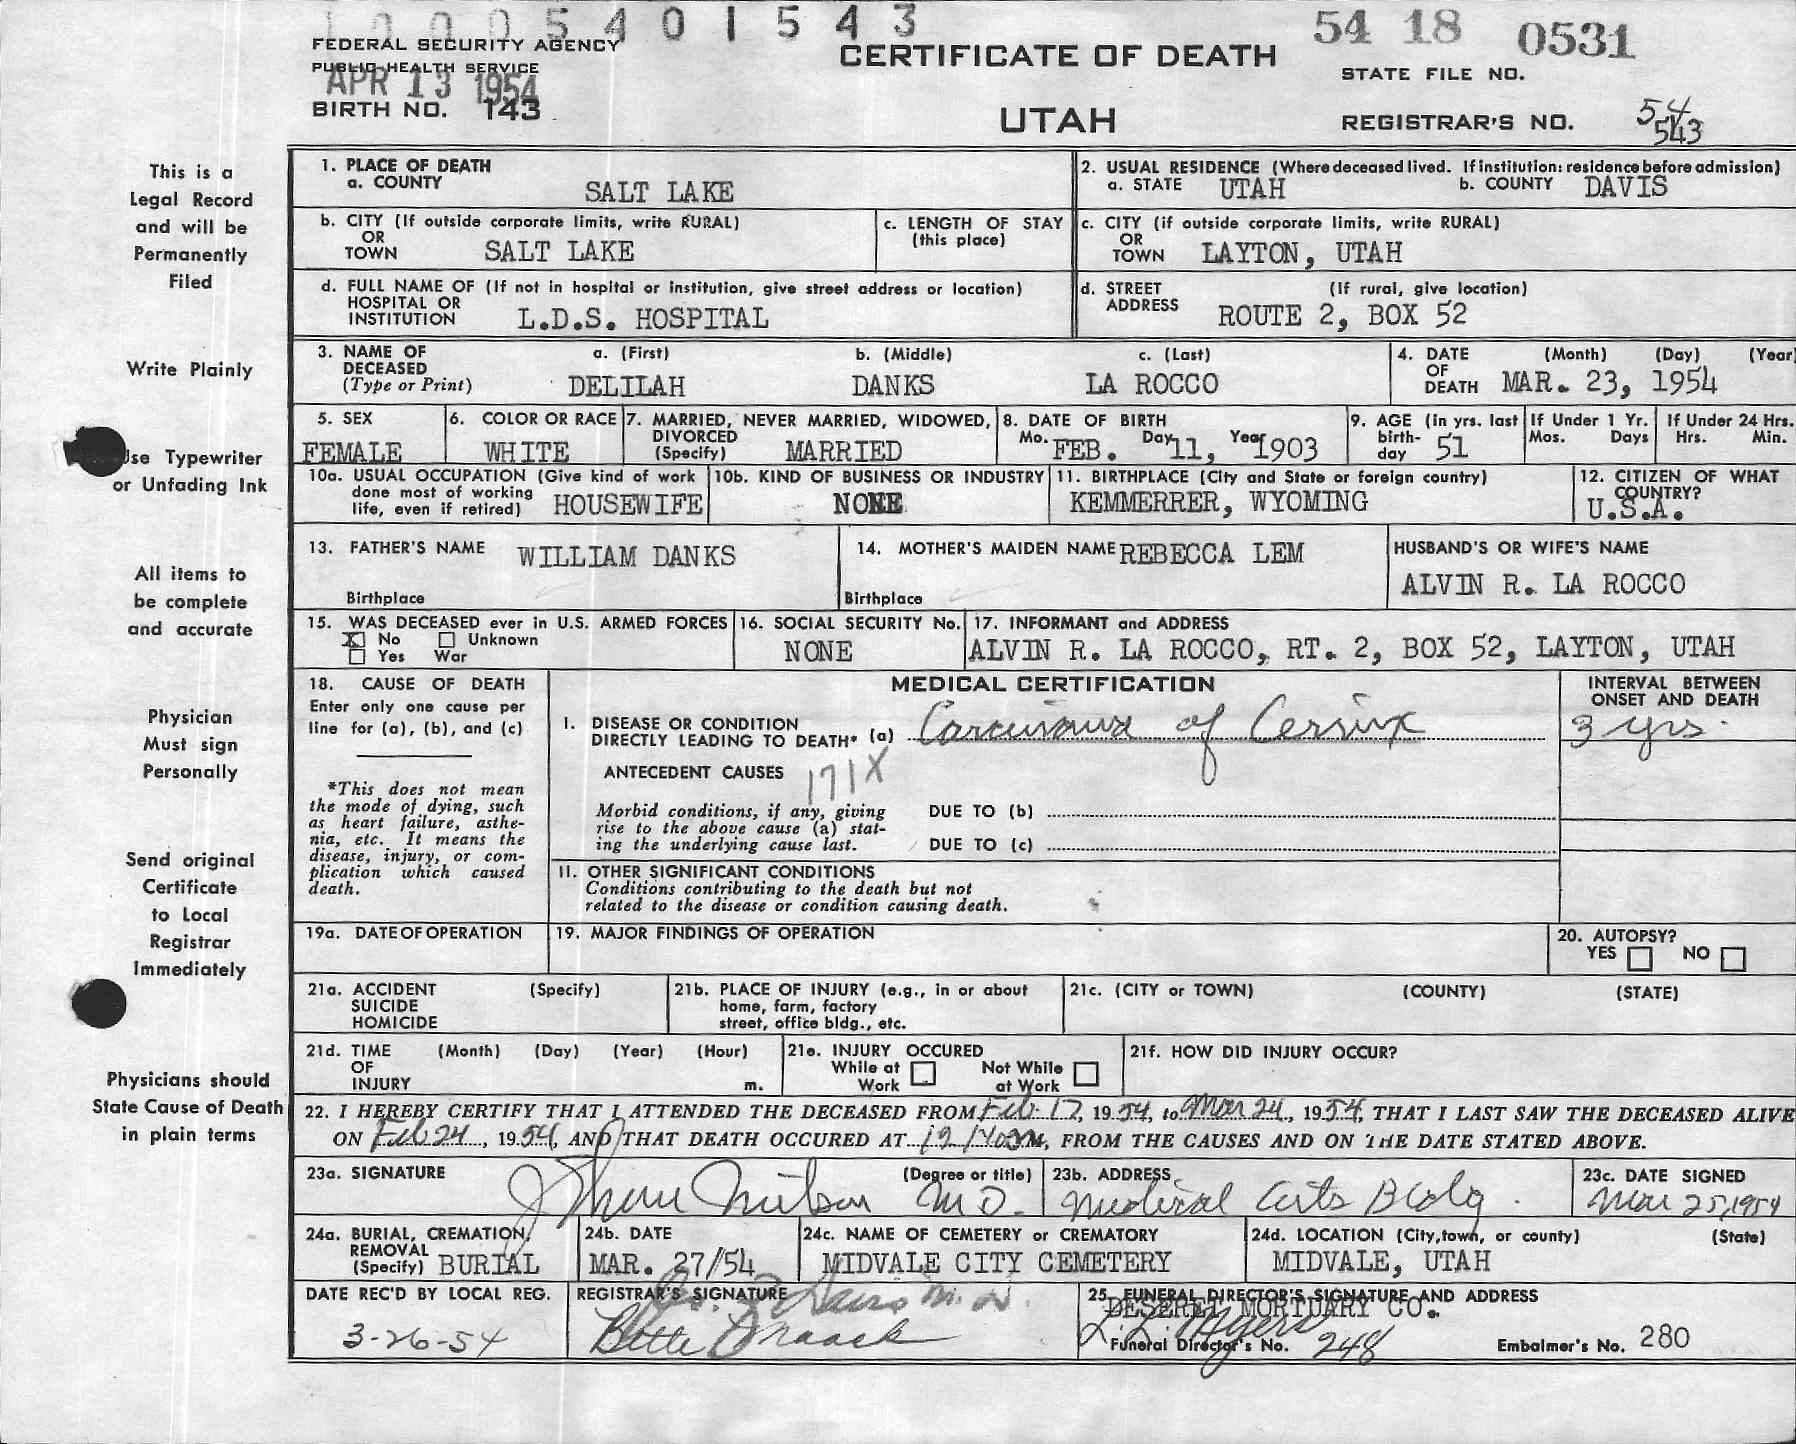 10005401543
54 18 0531
FEDERAL SECURITY AGENCY
PUBLIC HEALTH SERVICE
APR 13 1954
BIRTH NO. 143
CERTIFICATE OF DEATH
UTAH
STATE FILE NO.
REGISTRAR'S NO. 54 543
This is a
Legal Record
and will be
Permanently
Filed
Write Plainly
Use Typewriter
or Unfading Ink
All items to
be complete
and accurate
Physician
Must sign
Personally
Send original
Certificate
to Local
Registrar
Immediately
Physicians should
State Cause of Death
in plain terms
1. PLACE OF DEATH
a. COUNTY SALT LAKE
2. USUAL RESIDENCE (Where deceased lived. If institution: residence before admission)
a. STATE UTAH b. COUNTY DAVIS
b. CITY (If outside corporate limits, write RURAL)
OR
TOWN SALT LAKE
c. LENGTH OF STAY
(this place)
c. CITY (if outside corporate limits, write RURAL)
OR
TOWN LAYTON, UTAH
d. FULL NAME OF (If not in hospital or institution, give street address or location)
HOSPITAL OR
INSTITUTION L.D.S. HOSPITAL
d. STREET (If rural, give location)
ADDRESS ROUTE 2, BOX 52
3. NAME OF DECEASED
(Type or Print)
a. (First) b. (Middle) c. (Last)
DELILAH DANKS LA ROCCO
4. DATE OF DEATH (Month) (Day) (Year)
MAR. 23, 1954
5. SEX
FEMALE
6. COLOR OR RACE
WHITE
7. MARRIED, NEVER MARRIED, WIDOWED,
DIVORCED
(Specify) MARRIED
8. DATE OF BIRTH
Mo. FEB. Day 11, Year 1903
9. AGE (in yrs. last
birth-
day 51
If Under 1 Yr.
Mos. Days
If Under 24 Hrs.
Hrs. Min.
10a. USUAL OCCUPATION (Give kind of work
done most of working
life, even if retired) HOUSEWIFE
10b. KIND OF BUSINESS OR INDUSTRY
NONE
11. BIRTHPLACE (City and State or foreign country)
KEMMERRER, WYOMING
12. CITIZEN OF WHAT
COUNTRY?
U.S.A.
13. FATHER'S NAME WILLIAM DANKS
Birthplace
14. MOTHER'S MAIDEN NAME REBECCA LEM
Birthplace
HUSBAND'S OR WIFE'S NAME
ALVIN R. LA ROCCO
15. WAS DECEASED ever in U.S. ARMED FORCES
X No Unknown
Yes War
16. SOCIAL SECURITY No.
NONE
17. INFORMANT and ADDRESS
ALVIN R. LA ROCCO, RT. 2, BOX 52, LAYTON, UTAH
18. CAUSE OF DEATH
Enter only one cause per
line for (a), (b), and (c)
*This does not mean
the mode of dying, such
as heart failure, asthe-
nia, etc. It means the
disease, injury, or com-
plication which caused
death.
MEDICAL CERTIFICATION
I. DISEASE OR CONDITION
DIRECTLY LEADING TO DEATH* (a) Carcinoma of Cervix
ANTECEDENT CAUSES 171X
Morbid conditions, if any, giving
rise to the above cause (a) stat-
ing the underlying cause last.
DUE TO (b)
DUE TO (c)
II. OTHER SIGNIFICANT CONDITIONS
Conditions contributing to the death but not
related to the disease or condition causing death.
INTERVAL BETWEEN
ONSET AND DEATH
3 yrs.
19a. DATE OF OPERATION
19. MAJOR FINDINGS OF OPERATION
20. AUTOPSY?
YES NO
21a. ACCIDENT (Specify)
SUICIDE
HOMICIDE
21b. PLACE OF INJURY (e.g., in or about
home, farm, factory
street, office bldg., etc.
21c. (CITY or TOWN) (COUNTY) (STATE)
21d. TIME (Month) (Day) (Year) (Hour)
OF
INJURY m.
21e. INJURY OCCURED
While at Work Not While at Work
21f. HOW DID INJURY OCCUR?
22. I HEREBY CERTIFY THAT I ATTENDED THE DECEASED FROM Feb. 17, 1954, to Mar 24, 1954, THAT I LAST SAW THE DECEASED ALIVE
ON Feb 24, 1954, AND THAT DEATH OCCURED AT 12:40 M, FROM THE CAUSES AND ON THE DATE STATED ABOVE.
23a. SIGNATURE (Degree or title)
M.D.
23b. ADDRESS
Medical Arts Bldg.
23c. DATE SIGNED
Mar 25, 1954
24a. BURIAL, CREMATION,
REMOVAL
(Specify) BURIAL
24b. DATE
MAR. 27/54
24c. NAME OF CEMETERY or CREMATORY
MIDVALE CITY CEMETERY
24d. LOCATION (City, town, or county) (State)
MIDVALE, UTAH
DATE REC'D BY LOCAL REG.
3-26-54
REGISTRAR'S SIGNATURE
25. FUNERAL DIRECTOR'S SIGNATURE AND ADDRESS
DESERET MORTUARY CO.
Funeral Director's No. 248
Embalmer's No. 280